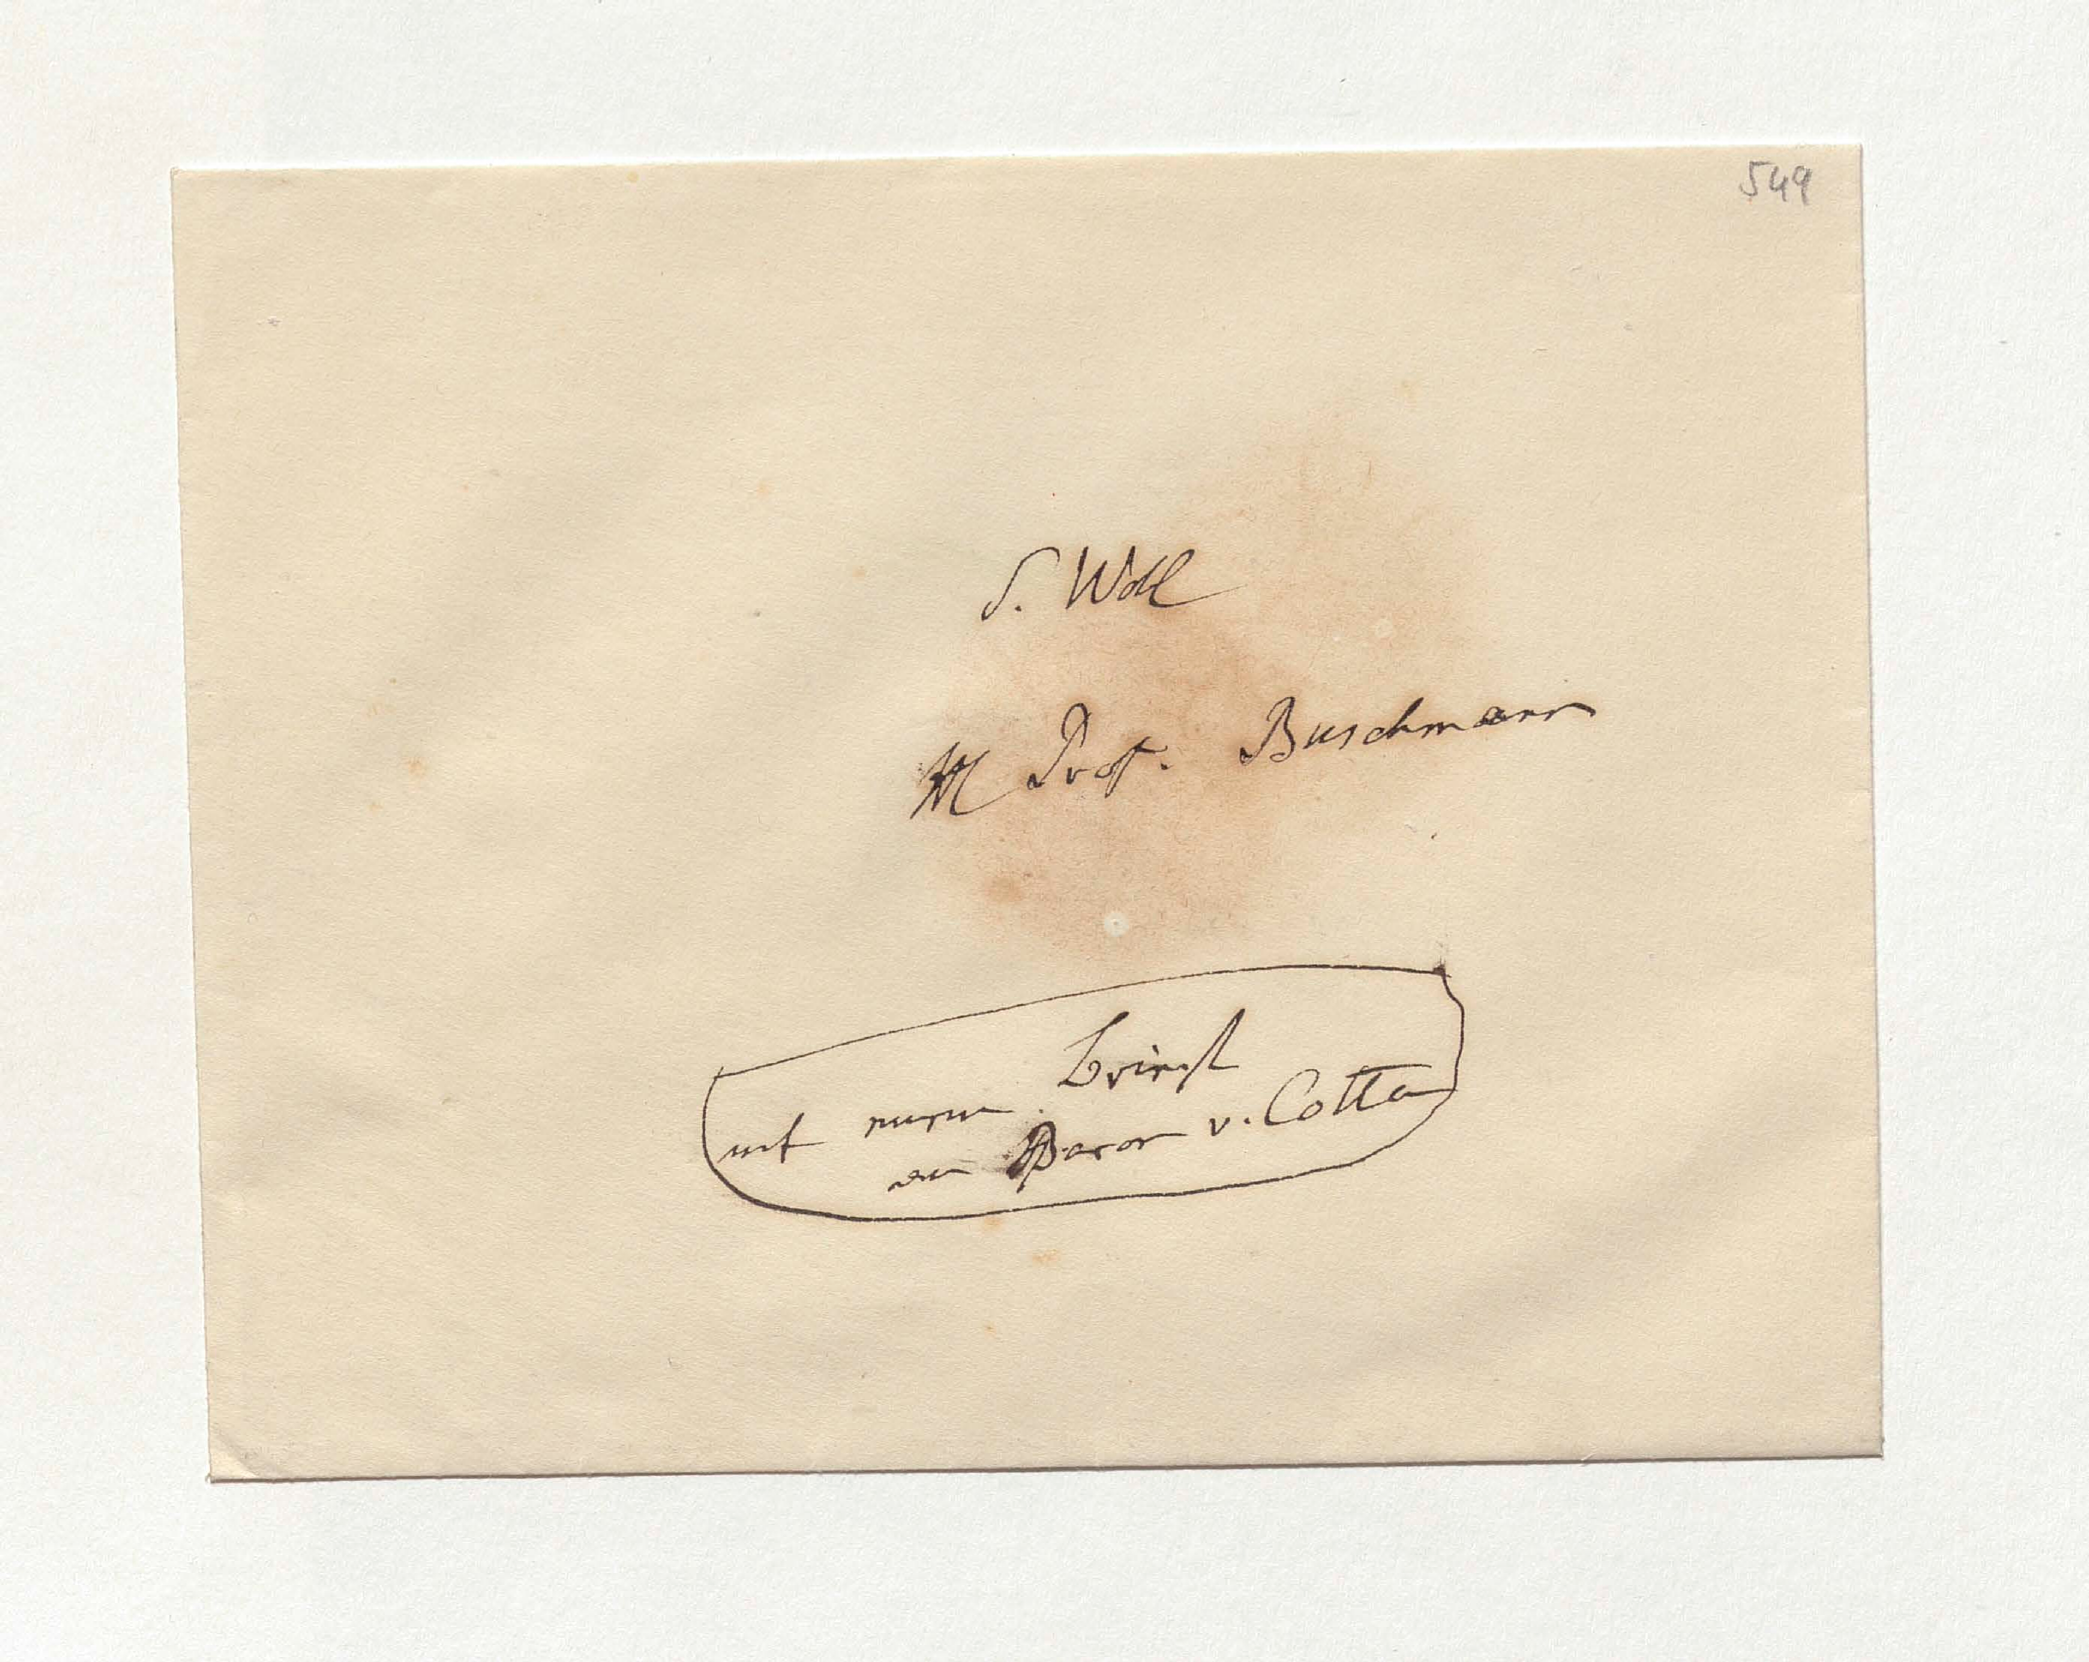 549
S. Woll
H Prof. Buschmann
Brief
mit einem
an Baron v. Cotta